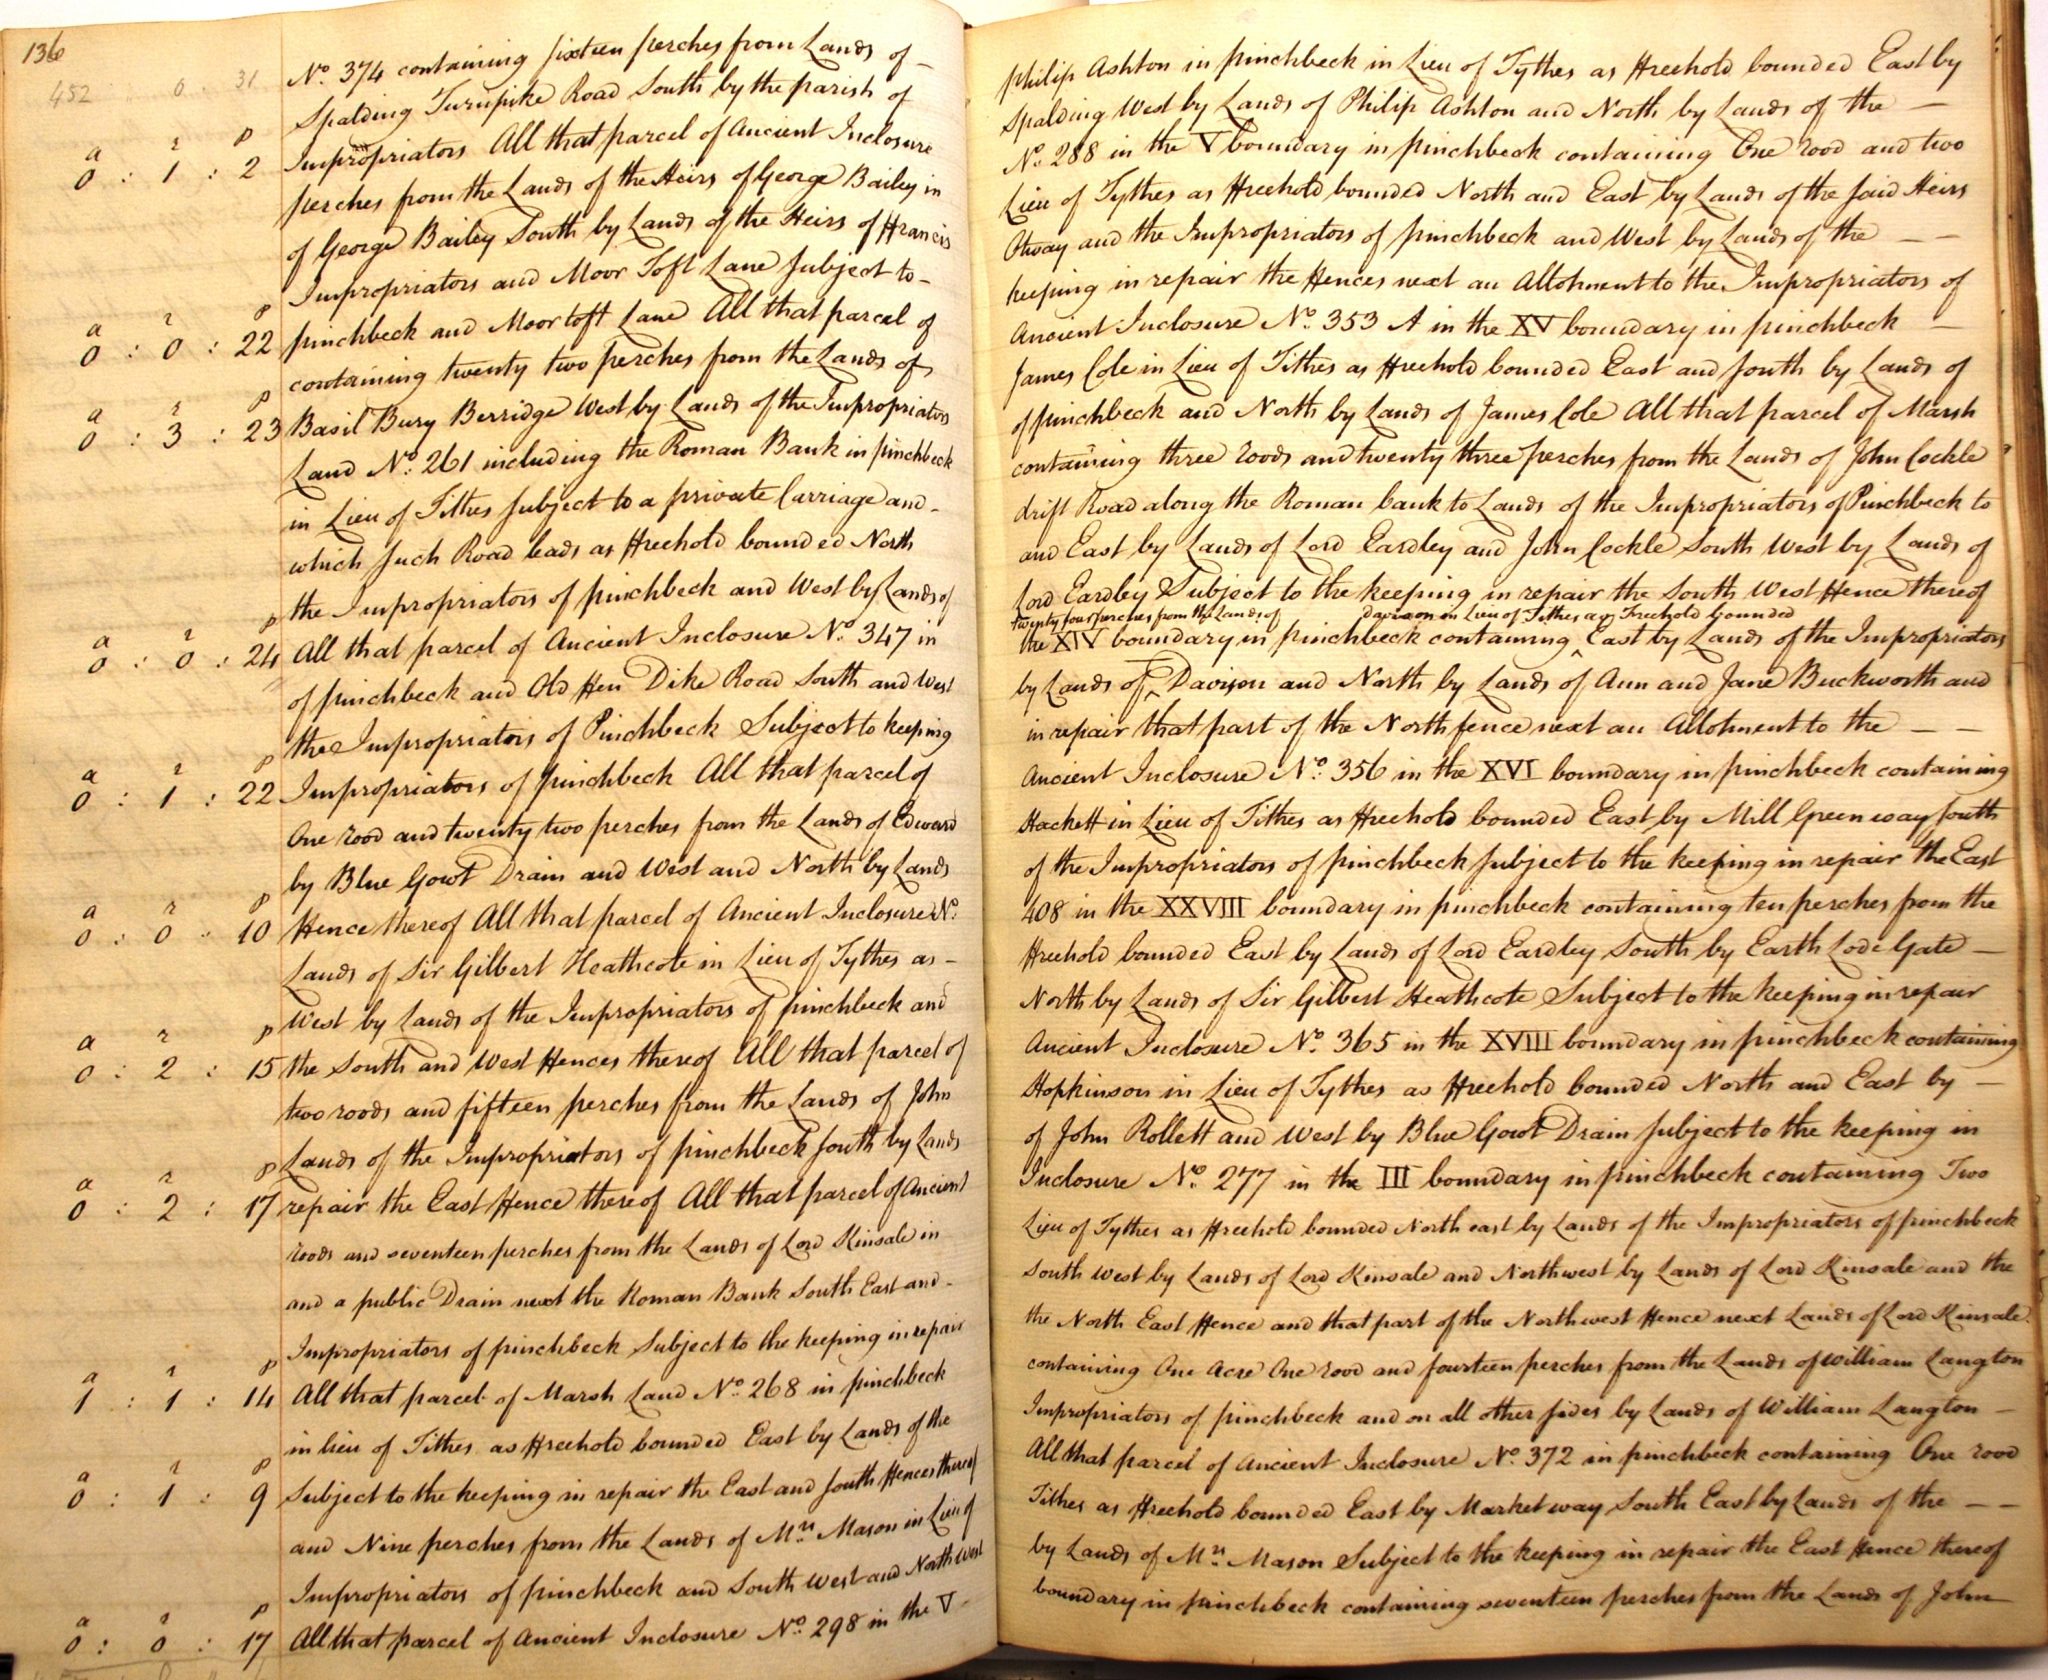 136
452 0 31
No. 374 containing sixteen perches from Lands of – Philip Ashton in Pinchbeck in Lieu of Tythes as Freehold bounded East by
Spalding Turnpike Road South by the parish of Spalding West by Lands of Philip Ashton and North by Lands of the –
a r p
0 : 1 : 2 Impropriators All that parcel of Ancient Inclosure No. 288 in the V boundary in pinchbeck containing One rood and two
perches from the Lands of the Heirs of George Bailey in Lieu of Tythes as Freehold bounded North and East by Lands of the said Heirs
of George Bailey South by Lands of the Heirs of Francis Otway and the Impropriators of pinchbeck and West by Lands of the – –
Impropriators and Moor Toft Lane subject to – keeping in repair the Fences next an Allotment to the Impropriators of
a r p
0 : 0 : 22 pinchbeck and Moor toft Lane All that parcel of Ancient Inclosure No. 353 A in the XV boundary in pinchbeck –
containing twenty two perches from the Lands of James Cole in Lieu of Tithes as Freehold bounded East and South by Lands of
a r p
0 : 3 : 23 Basil Bury Berridge West by Lands of the Impropriators of pinchbeck and North by Lands of James Cole All that parcel of Marsh
Land No. 261 including the Roman Bank in pinchbeck containing three roods and twenty three perches from the Lands of John Cockle
in Lieu of Tithes subject to a private Carriage and – drift Road along the Roman bank to Lands of the Impropriators of Pinchbeck to
which such Road leads as Freehold bounded North and East by Lands of Lord Eardley and John Cockle South West by Lands of
the Impropriators of pinchbeck and West by Lands of Lord Eardley Subject to the keeping in repair the South West Fence thereof
twenty four perches from the Lands of Davison in Lieu of Tithes as Freehold bounded
a r p
0 : 0 : 24 All that parcel of Ancient Inclosure No. 347 in the XIV boundary in pinchbeck containing ‸ East by Lands of the Impropriators
of pinchbeck and Old Fen Dike Road South and West by Lands of ‸ Davison and North by Lands of Ann and Jane Buckworth and
the Impropriators of Pinchbeck Subject to keeping in repair that part of the North fence next an Allotment to the – –
a r p
0 : 1 : 22 Impropriators of pinchbeck All that parcel of Ancient Inclosure No. 356 in the XVI boundary in pinchbeck containing
One rood and twenty two perches from the Lands of Edward Hackett in Lieu of Tithes as Freehold bounded East by Mill Green way South
by Blue Gowt Drain and West and North by Lands of the Impropriators of pinchbeck subject to the keeping in repair the East
a r p
0 : 0 : 10 Fence thereof All that parcel of Ancient Inclosure No. 408 in the XXVIII boundary in pinchbeck containing ten perches from the
Lands of Sir Gilbert Heathcote in Lieu of Tythes as – Freehold bounded East by Lands of Lord Eardley South by Earth Lode Gate –
West by Lands of the Impropriators of pinchbeck and North by Lands of Sir Gilbert Heathcote Subject to the keeping in repair
a r p
0 : 2 : 15 the South and West Fences thereof All that parcel of Ancient Inclosure No. 365 in the XVIII boundary in pinchbeck containing
two roods and fifteen perches from the Lands of John Hopkinson in Lieu of Tythes as Freehold bounded North and East by –
Lands of the Impropriators of pinchbeck South by Lands of John Rollett and West by Blue Gowt Drain subject to the keeping in
a r p
0 : 2 : 17 repair the East Fence thereof All that parcel of Ancient Inclosure No. 277 in the III boundary in pinchbeck containing Two
roods and seventeen perches from the Lands of Lord Kinsale in Lieu of Tythes as Freehold bounded North east by Lands of the Impropriators of pinchbeck
and a public Drain next the Roman Bank South East and – South West by Lands of Lord Kinsale and Northwest by Lands of Lord Kinsale and the
Impropriators of pinchbeck Subject to the keeping in repair the North East Fence and that part of the Northwest Fence next Lands of Lord Kinsale
a r p
1 : 1 : 14 All that parcel of Marsh Land No. 268 in pinchbeck containing One Acre One rood and fourteen perches from the Lands of William Langton
in lieu of Tithes as Freehold bounded East by Lands of the Impropriators of pinchbeck and on all other sides by Lands of William Langton –
a r p
0 : 1 : 9 Subject to the keeping in repair the East and South Fences thereof All that parcel of Ancient Inclosure No. 372 in pinchbeck containing One rood
and Nine perches from the Lands of Mrs. Mason in Lieu of Tithes as Freehold bounded East by Market way South East by Lands of the – –
Impropriators of pinchbeck and South West and North West by Lands of Mrs. Mason Subject to the keeping in repair the East Fence thereof
a r p
0 : 0 : 17 All that parcel of Ancient Inclosure No. 298 in the V – boundary in pinchbeck containing seventeen perches from the Lands of John